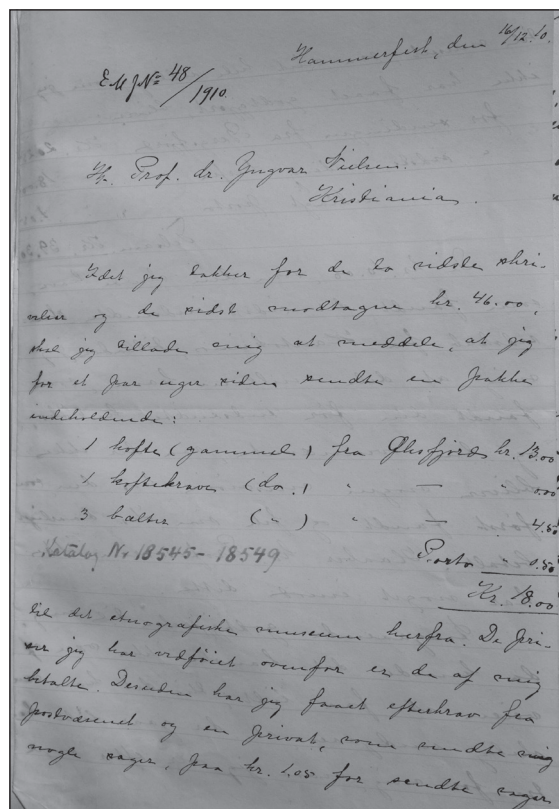 Hammerfest, den 16/12.10.
E.M.J.Nº 48/1910.
Hr. Prof. dr. Yngvar Nielsen.
Kristiania.
Idet jeg takker for de to sidste skri-
velser og de sidst modtagne kr. 46.00,
skal jeg tillade mig at meddele, at jeg
for et par uger siden sendte en pakke
indeholdende:
1 kofte (gammel) fra Øksfjord kr. 13.00
1 koftekrave (do.) " —
3 bælter ( " ) " — 4.50
Katalog Nr 18545-18549
Porto " 0.50
Kr. 18.00
til det etnografiske museum herfra. De pri-
ser jeg har vedføiet ovenfor er de af mig
betalte. Desuden har jeg faaet efterkrav fra
postvæsenet og en privat, som sendte mig
nogle sager, paa kr. 1.05 for sendte sager